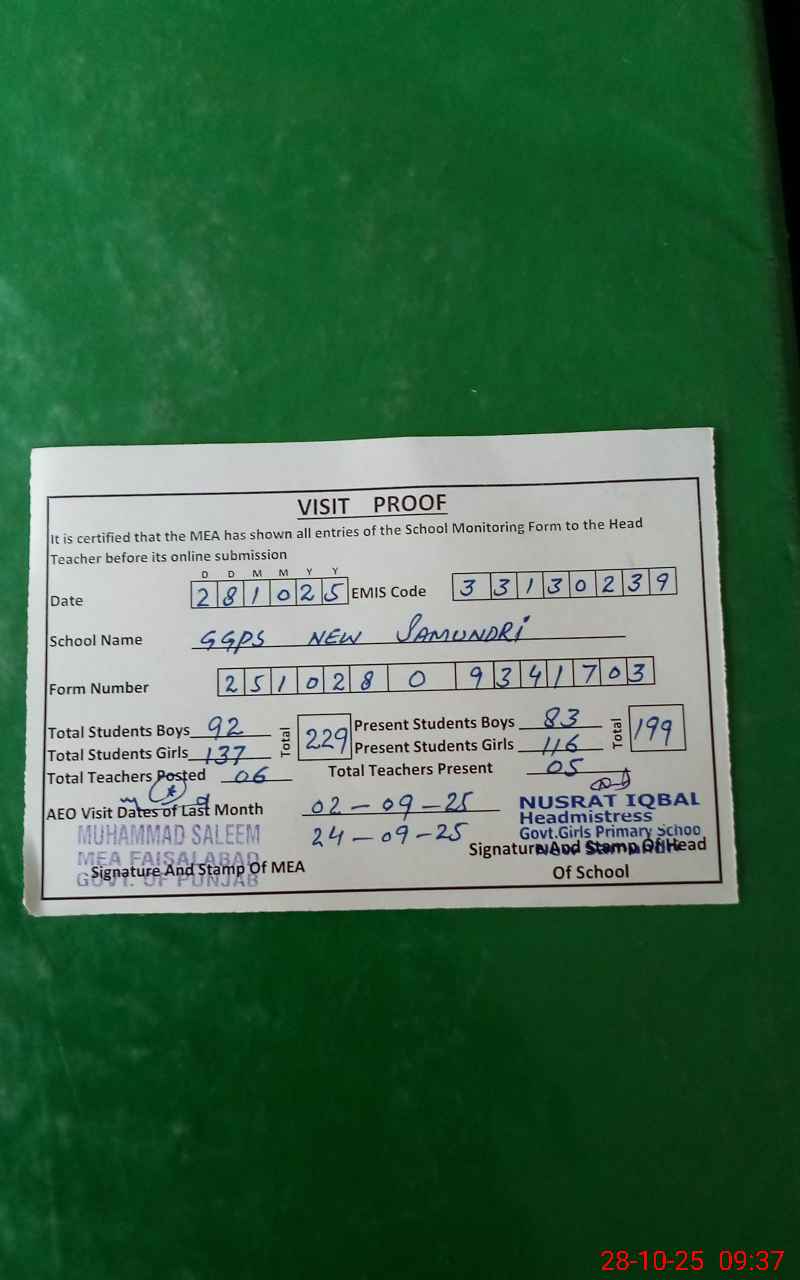 VISIT PROOF
It is certified that the MEA has shown all entries of the School Monitoring Form to the Head
Teacher before its online submission
D D M M Y Y
Date 281025 EMIS Code 33130239
School Name GGPS NEW SAMUNDRI
Form Number 251028 0 9341703
Total Students Boys 92 Total 229 Present Students Boys 83 Total 199
Total Students Girls 137 Present Students Girls 116
Total Teachers Posted 06 Total Teachers Present 05
AEO Visit Dates of Last Month 02-09-25
24-09-25
MUHAMMAD SALEEM
MEA FAISALABAD
GOVT. OF PUNJAB
Signature And Stamp Of MEA
NUSRAT IQBAL
Headmistress
Govt.Girls Primary Schoo
Signature And Stamp Of Head
Of School
28-10-25 09:37